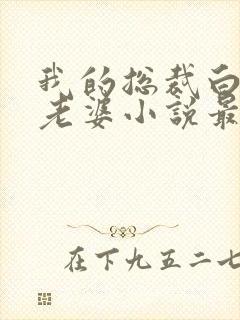 我的总裁白
老婆小说最
在下九五二七